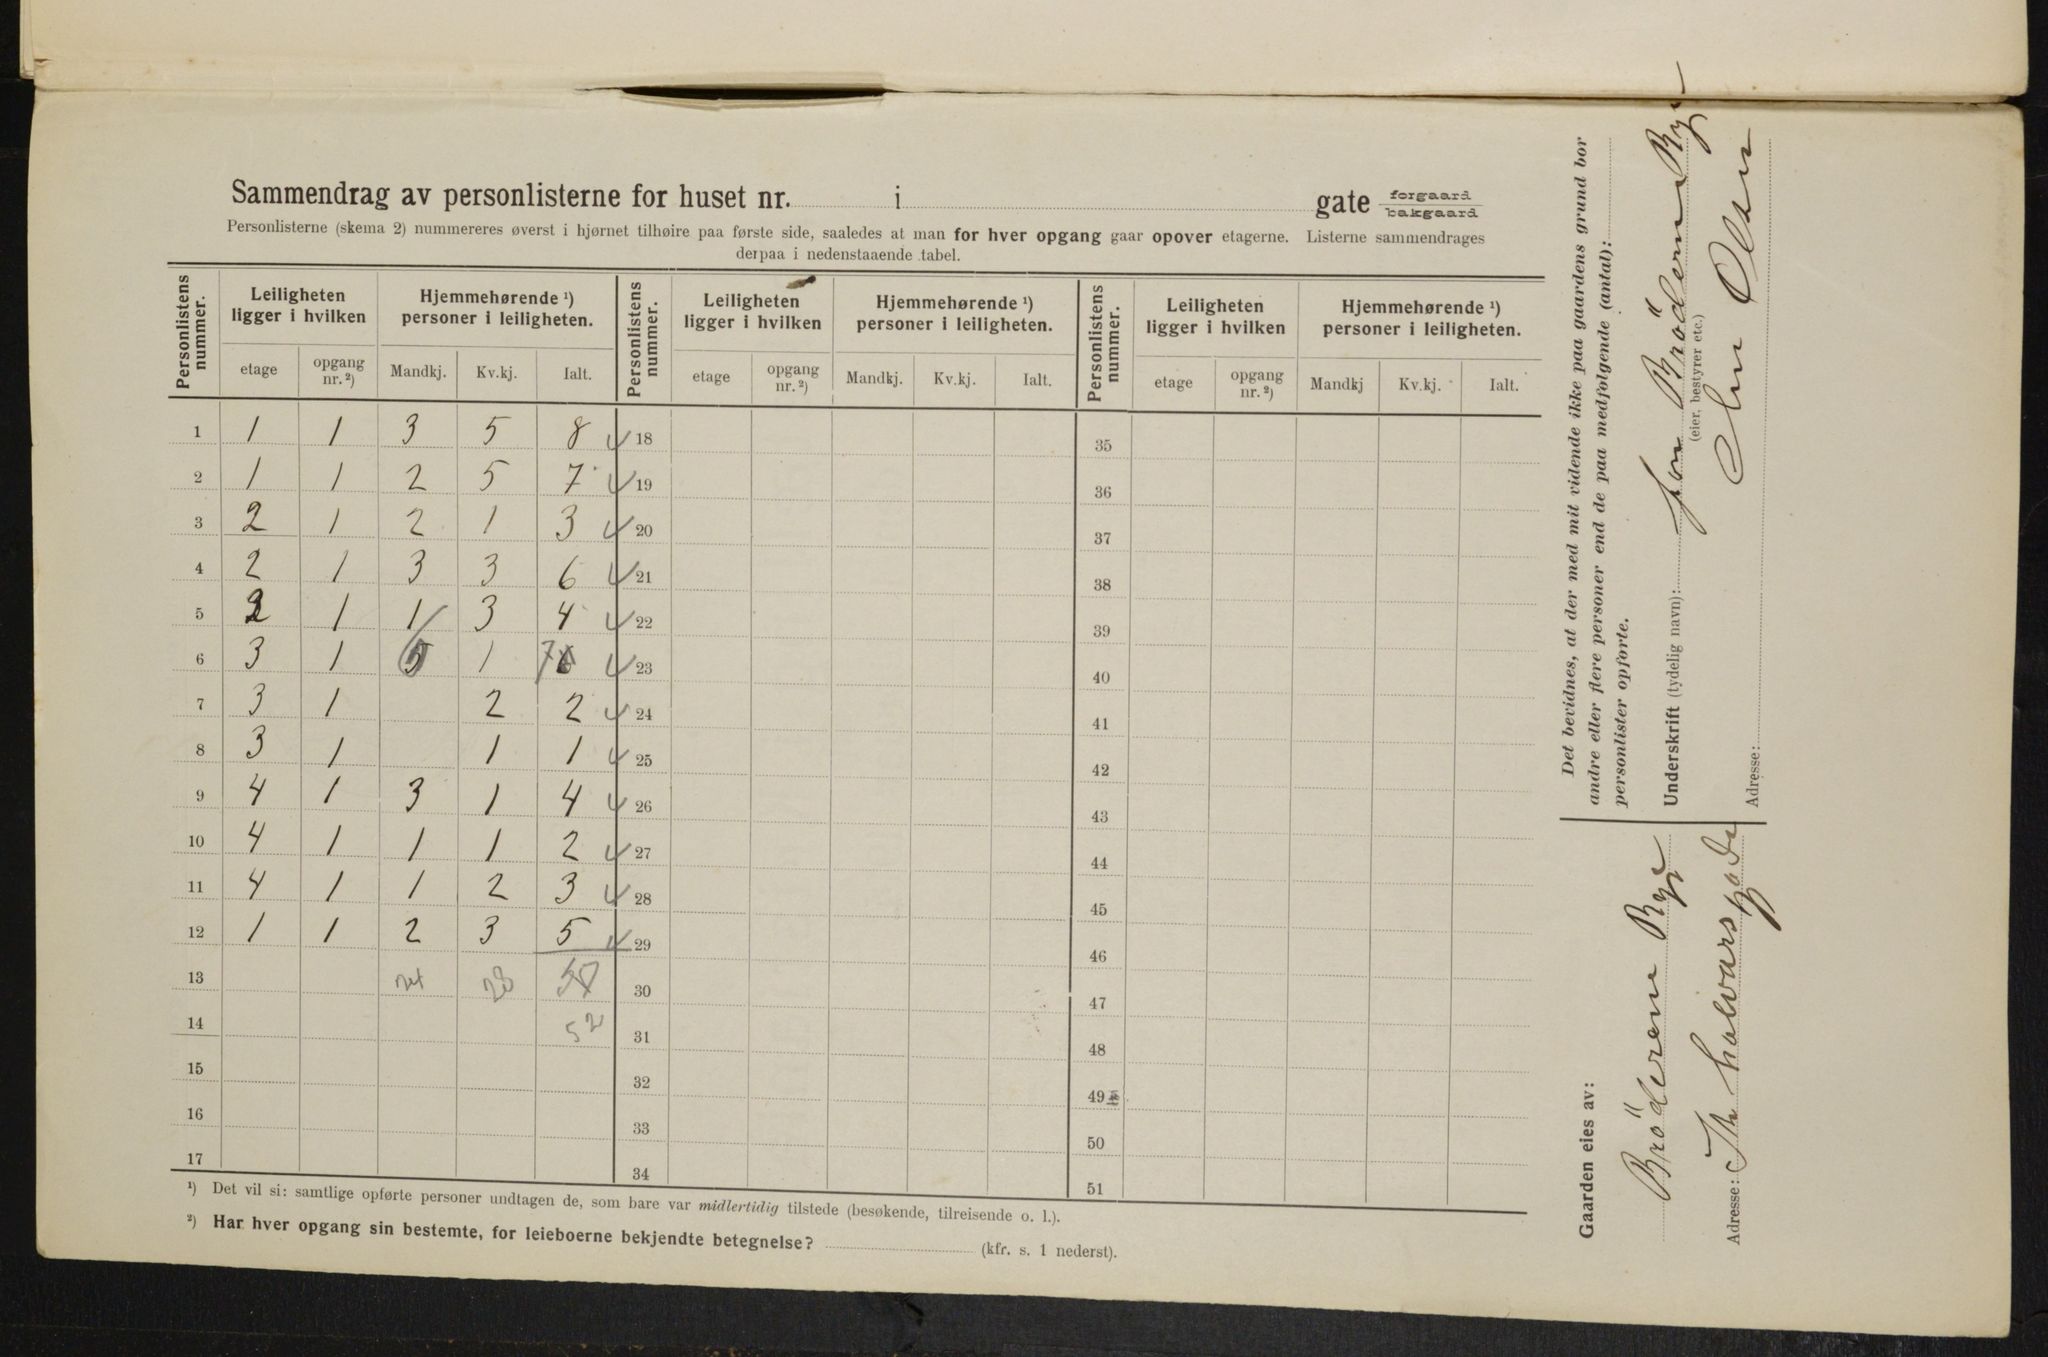 Sammendrag av personlisterne for huset nr. i gate forgaard bakgaard
Personlisterne (skema 2) nummereres øverst i hjørnet tilhøire paa første side, saaledes at man for hver opgang gaar opover etagerne. Listerne sammendrages
derpaa i nedenstaaende tabel.
Personlistens nummer. Leiligheten ligger i hvilken Hjemmehørende ¹) personer i leiligheten. Personlistens nummer. Leiligheten ligger i hvilken Hjemmehørende ¹) personer i leiligheten. Personlistens nummer. Leiligheten ligger i hvilken Hjemmehørende ¹) personer i leiligheten.
etage opgang nr. ²) Mandkj. Kv.kj. Ialt. etage opgang nr. ²) Mandkj. Kv.kj. Ialt. etage opgang nr. ²) Mandkj Kv.kj. Ialt.
1 1 1 3 5 8 18 35
2 1 1 2 5 7 19 36
3 2 1 2 1 3 20 37
4 2 1 3 3 6 21 38
5 2 1 1 3 4 22 39
6 3 1 6 1 7 23 40
7 3 1 2 2 24 41
8 3 1 1 1 25 42
9 4 1 3 1 4 26 43
10 4 1 1 1 2 27 44
11 4 1 1 2 3 28 45
12 1 1 2 3 5 29 46
13 24 28 30 47
14 52 31 48
15 32 49
16 33 50
17 34 51
¹) Det vil si: samtlige opførte personer undtagen de, som bare var midlertidig tilstede (besøkende, tilreisende o. l.).
²) Har hver opgang sin bestemte, for leieboerne bekjendte betegnelse? (kfr. s. 1 nederst).
Det bevidnes, at der med mit vidende ikke paa gaardens grund bor
andre eller flere personer end de paa medfølgende (antal):
personlister opførte.
Underskrift (tydelig navn): for Brödrene Rye
(eier, bestyrer etc.)
Olsen
Adresse:
Gaarden eies av:
Brödrene Rye
Adresse: Th halvorsgade